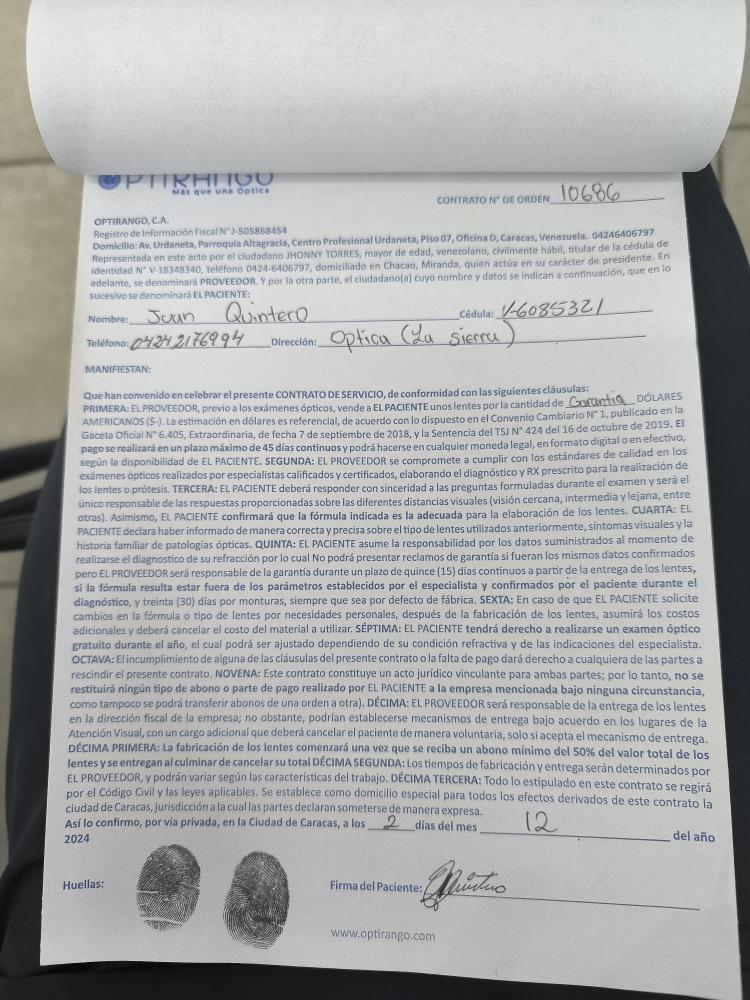 OPTIRANGO
Más que una Óptica
CONTRATO N° DE ORDEN 10686
OPTIRANGO, C.A.
Registro de Información Fiscal N° J-505868454
Domicilio: Av. Urdaneta, Parroquia Altagracia, Centro Profesional Urdaneta, Piso 07, Oficina D, Caracas, Venezuela. 04246406797
Representada en este acto por el ciudadano JHONNY TORRES, mayor de edad, venezolano, civilmente hábil, titular de la cédula de
identidad N° V-18348340, teléfono 0424-6406797, domiciliado en Chacao, Miranda, quien actúa en su carácter de presidente. En
adelante, se denominará PROVEEDOR. Y por la otra parte, el ciudadano(a) cuyo nombre y datos se indican a continuación, que en lo
sucesivo se denominará EL PACIENTE:
Nombre: Juan Quintero Cédula: V-6085321
Teléfono: 04242176994 Dirección: Optica (La sierra)
MANIFIESTAN:
Que han convenido en celebrar el presente CONTRATO DE SERVICIO, de conformidad con las siguientes cláusulas:
PRIMERA: EL PROVEEDOR, previo a los exámenes ópticos, vende a EL PACIENTE unos lentes por la cantidad de Garantia DÓLARES
AMERICANOS ($-). La estimación en dólares es referencial, de acuerdo con lo dispuesto en el Convenio Cambiario N° 1, publicado en la
Gaceta Oficial N° 6.405, Extraordinaria, de fecha 7 de septiembre de 2018, y la Sentencia del TSJ N° 424 del 16 de octubre de 2019. El
pago se realizará en un plazo máximo de 45 días continuos y podrá hacerse en cualquier moneda legal, en formato digital o en efectivo,
según la disponibilidad de EL PACIENTE. SEGUNDA: EL PROVEEDOR se compromete a cumplir con los estándares de calidad en los
exámenes ópticos realizados por especialistas calificados y certificados, elaborando el diagnóstico y RX prescrito para la realización de
los lentes o prótesis. TERCERA: EL PACIENTE deberá responder con sinceridad a las preguntas formuladas durante el examen y será el
único responsable de las respuestas proporcionadas sobre las diferentes distancias visuales (visión cercana, intermedia y lejana, entre
otras). Asimismo, EL PACIENTE confirmará que la fórmula indicada es la adecuada para la elaboración de los lentes. CUARTA: EL
PACIENTE declara haber informado de manera correcta y precisa sobre el tipo de lentes utilizados anteriormente, síntomas visuales y la
historia familiar de patologías ópticas. QUINTA: EL PACIENTE asume la responsabilidad por los datos suministrados al momento de
realizarse el diagnostico de su refracción por lo cual No podrá presentar reclamos de garantía si fueran los mismos datos confirmados
pero EL PROVEEDOR será responsable de la garantía durante un plazo de quince (15) días continuos a partir de la entrega de los lentes,
si la fórmula resulta estar fuera de los parámetros establecidos por el especialista y confirmados por el paciente durante el
diagnóstico, y treinta (30) días por monturas, siempre que sea por defecto de fábrica. SEXTA: En caso de que EL PACIENTE solicite
cambios en la fórmula o tipo de lentes por necesidades personales, después de la fabricación de los lentes, asumirá los costos
adicionales y deberá cancelar el costo del material a utilizar. SÉPTIMA: EL PACIENTE tendrá derecho a realizarse un examen óptico
gratuito durante el año, el cual podrá ser ajustado dependiendo de su condición refractiva y de las indicaciones del especialista.
OCTAVA: El incumplimiento de alguna de las cláusulas del presente contrato o la falta de pago dará derecho a cualquiera de las partes a
rescindir el presente contrato. NOVENA: Este contrato constituye un acto jurídico vinculante para ambas partes; por lo tanto, no se
restituirá ningún tipo de abono o parte de pago realizado por EL PACIENTE a la empresa mencionada bajo ninguna circunstancia,
como tampoco se podrá transferir abonos de una orden a otra). DÉCIMA: EL PROVEEDOR será responsable de la entrega de los lentes
en la dirección fiscal de la empresa; no obstante, podrían establecerse mecanismos de entrega bajo acuerdo en los lugares de la
Atención Visual, con un cargo adicional que deberá cancelar el paciente de manera voluntaria, solo si acepta el mecanismo de entrega.
DÉCIMA PRIMERA: La fabricación de los lentes comenzará una vez que se reciba un abono mínimo del 50% del valor total de los
lentes y se entregan al culminar de cancelar su total DÉCIMA SEGUNDA: Los tiempos de fabricación y entrega serán determinados por
EL PROVEEDOR, y podrán variar según las características del trabajo. DÉCIMA TERCERA: Todo lo estipulado en este contrato se regirá
por el Código Civil y las leyes aplicables. Se establece como domicilio especial para todos los efectos derivados de este contrato la
ciudad de Caracas, jurisdicción a la cual las partes declaran someterse de manera expresa.
Así lo confirmo, por vía privada, en la Ciudad de Caracas, a los 2 días del mes 12 del año
2024
Huellas:
Firma del Paciente: Quintero
www.optirango.com